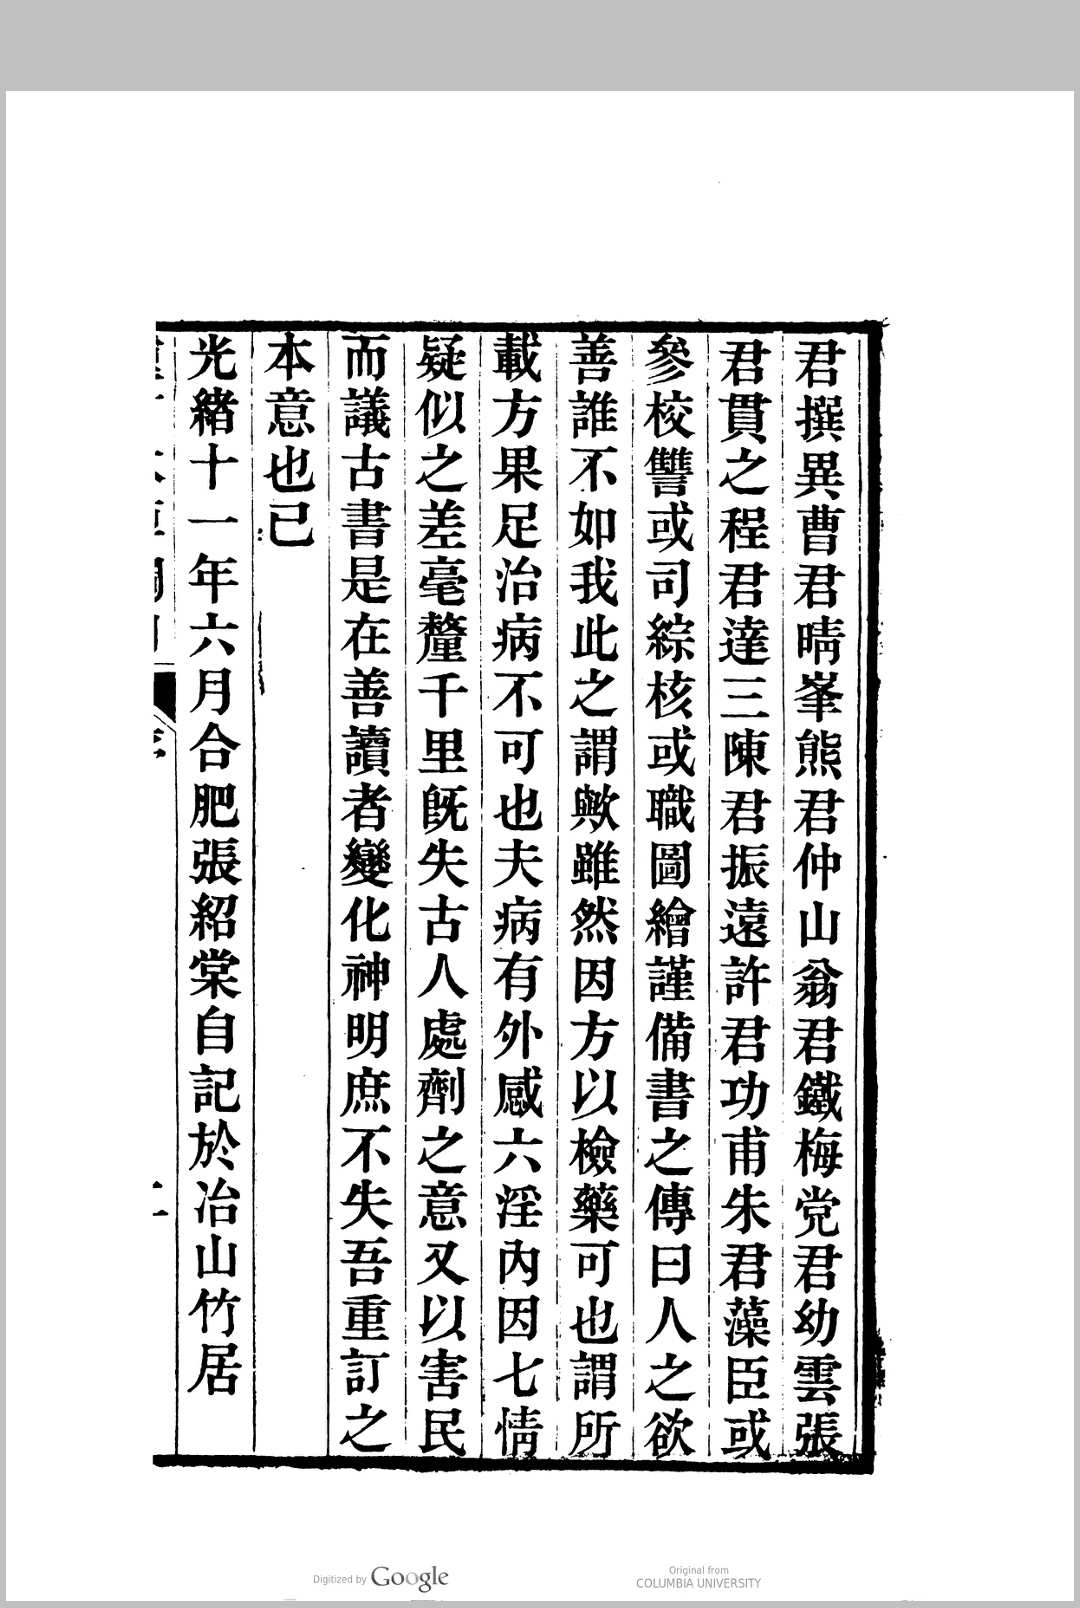 君撰異曹君晴峯熊君仲山翁君鐵梅党君幼雲張
君貫之程君達三陳君振遠許君功甫朱君藻臣或
參校讐或司綜核或職圖繪謹備書之傳曰人之欲
善誰不如我此之謂歟雖然因方以檢藥可也謂所
載方果足治病不可也夫病有外感六淫內因七情
疑似之差毫釐千里旣失古人處劑之意又以害民
而議古書是在善讀者變化神明庶不失吾重訂之
本意也已
光緒十一年六月合肥張紹棠自記於冶山竹居
Digitized by Google
Original from
COLUMBIA UNIVERSITY